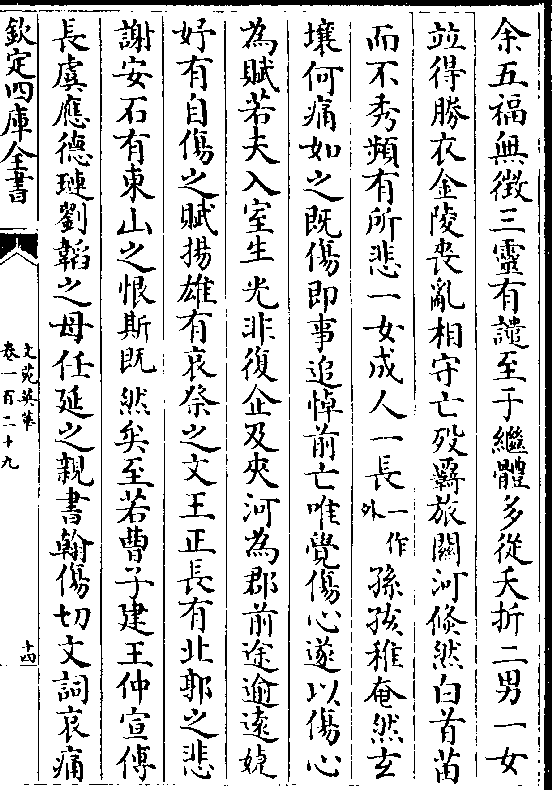 余五福無徴三靈有譴至于繼體多從夭折二男一女
竝得勝衣金陵喪亂相守亡歿羇旅關河倐然白首苗
而不秀頻有所悲一女成人一長一作外孫孩稚奄然玄
壤何痛如之既傷即事追悼前亡唯覺傷心遂以傷心
為賦若夫入室生光非復企及夾河為郡前途逾遠婕
妤有自傷之賦揚雄有哀祭之文王正長有北郭之悲
謝安石有東山之恨斯既然矣至若曹子建王仲宣傅
長虞應德璉劉韜之母任延之親書翰傷切文詞哀痛
欽定四庫全書
文苑英華
卷一百二十九
十四